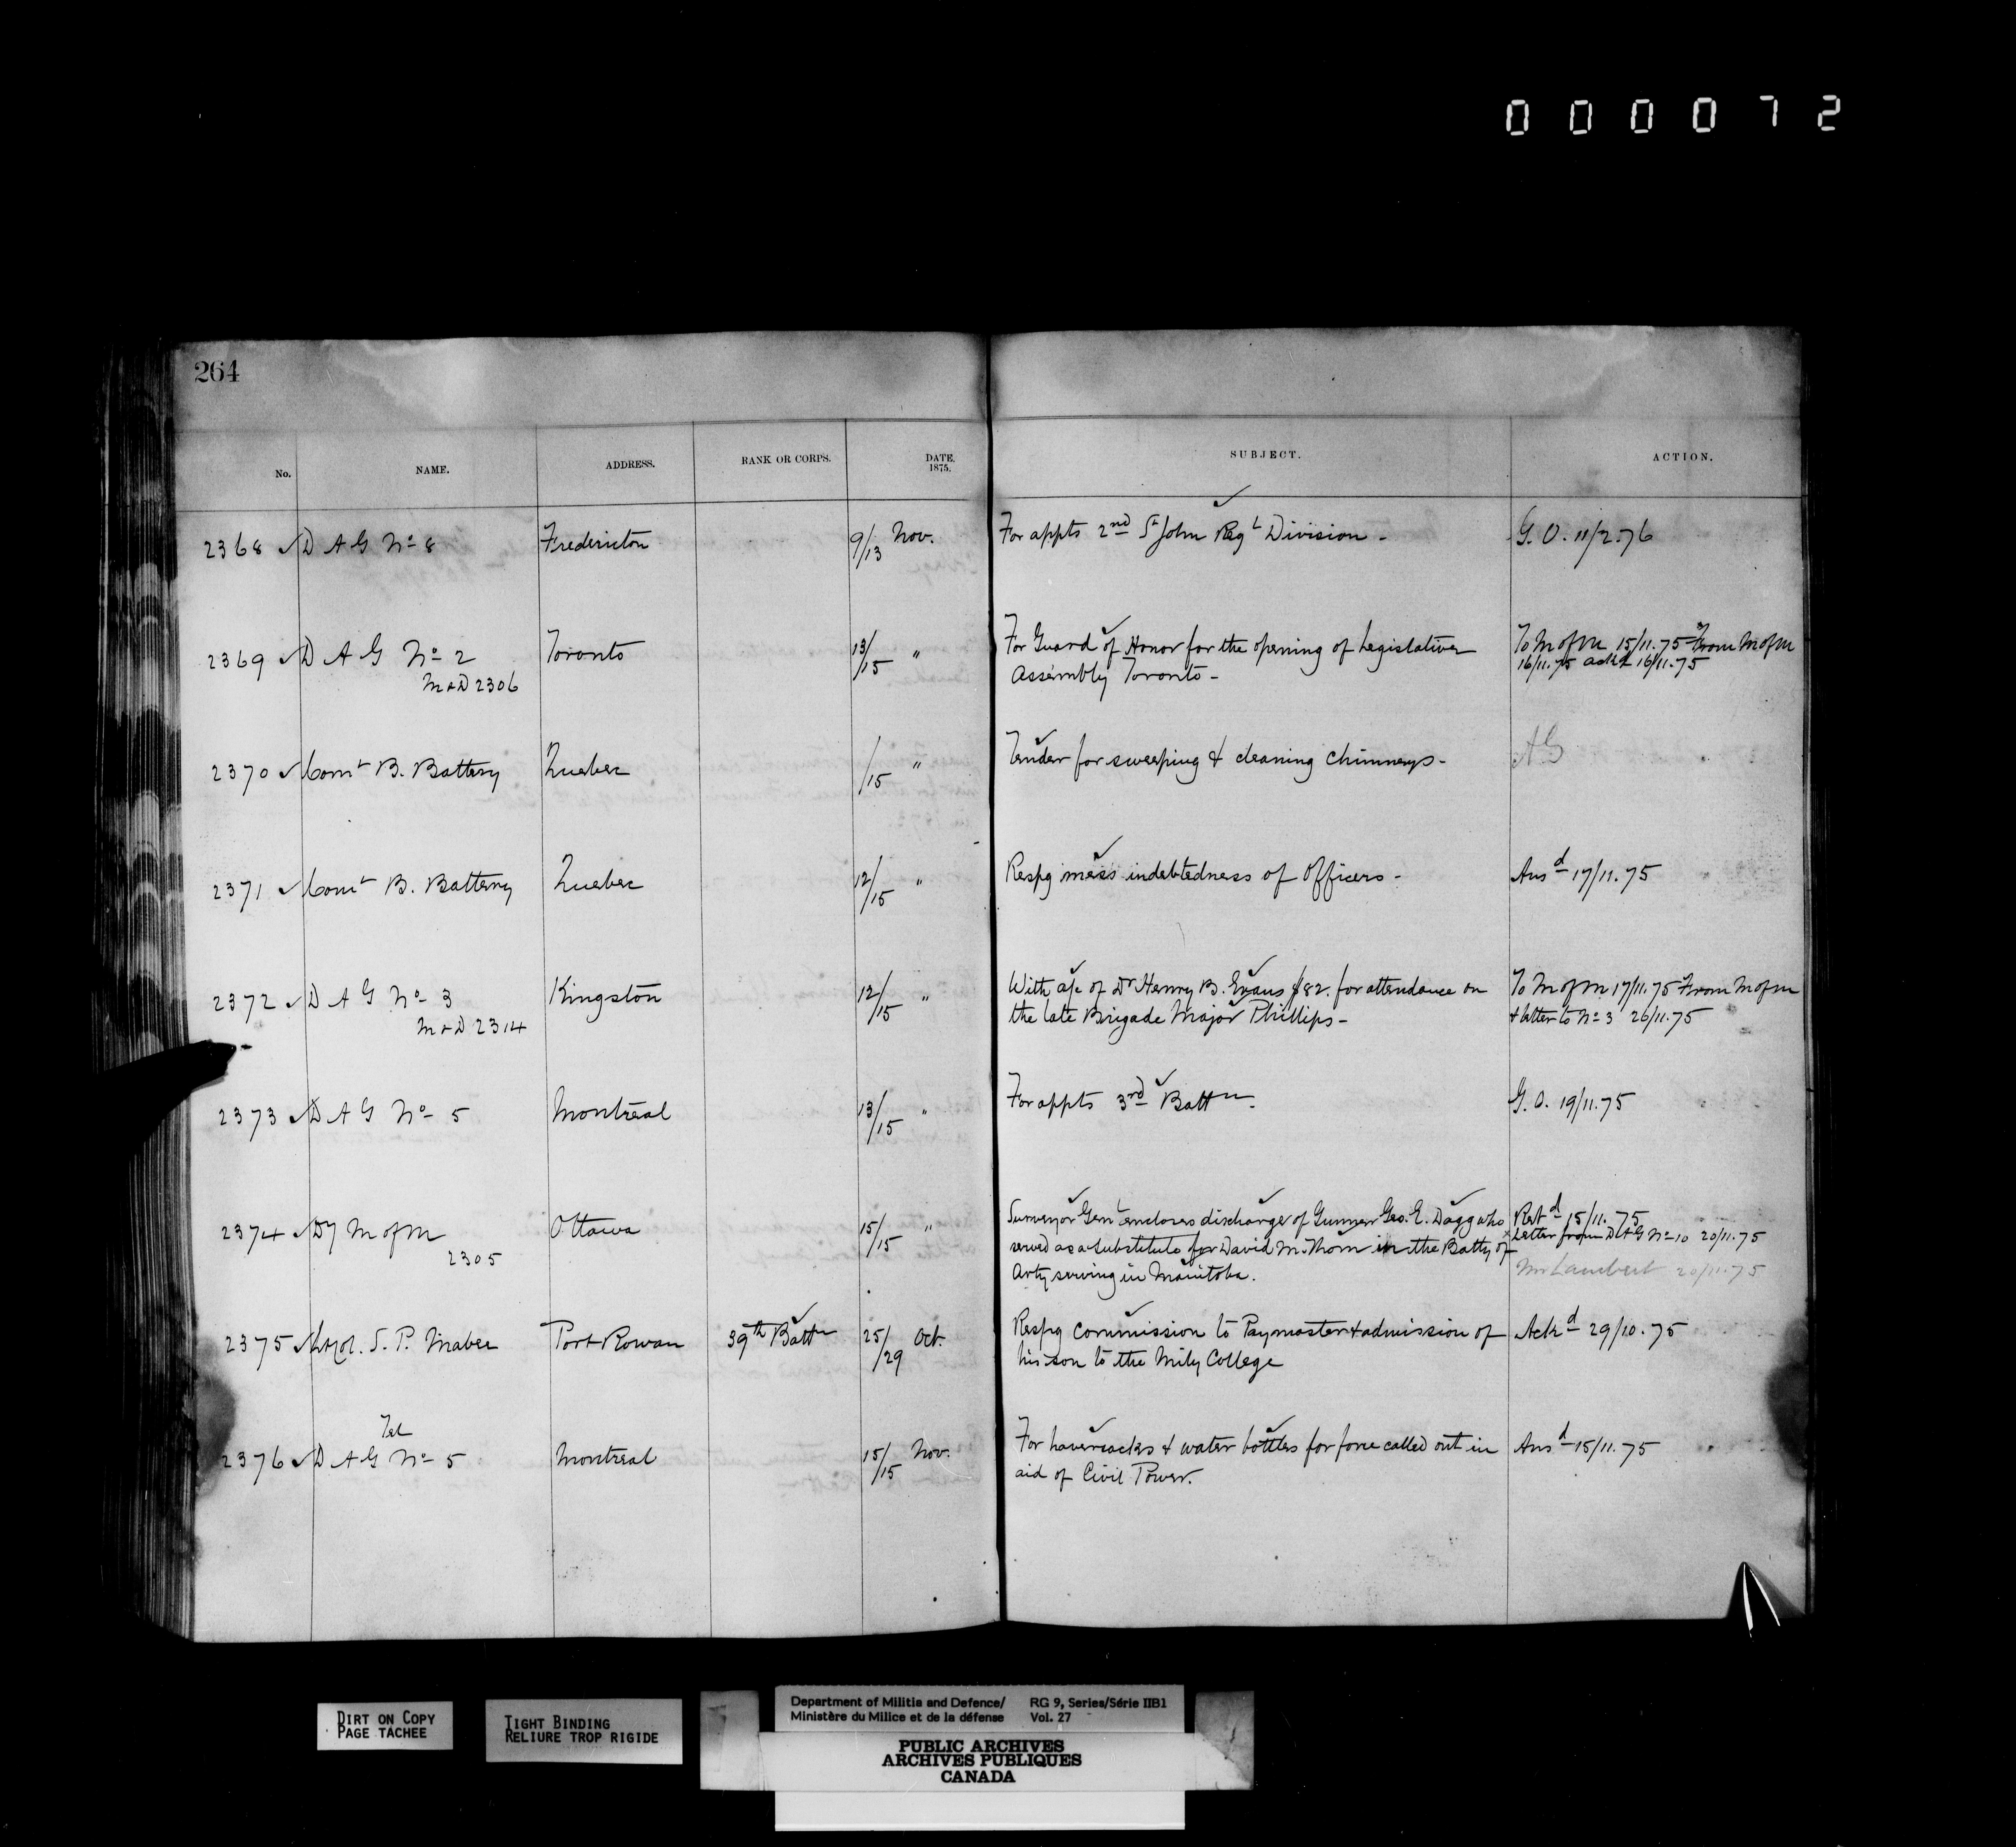 000072
264
No. NAME. ADDRESS. RANK OR CORPS. DATE. 1875. SUBJECT. ACTION.
2368 D A G No 8 Fredericton 9/13 Nov. For appts 2nd St John Regt Division - G. O. 11/2.76
2369 D A G No 2 Toronto 13/15 " For Guard of Honor for the opening of Legislative To M of M 15/11.75 From M of M
M & D 2306 Assembly Toronto - 16/11.75 ackd 16/11.75
2370 Comt B. Battery Quebec /15 " Tender for sweeping & cleaning chimneys - AG
2371 Comt B. Battery Quebec 12/15 " Respg mess indebtedness of Officers - Ansd 17/11.75
2372 D A G No 3 Kingston 12/15 " With a/c of Dr Henry B. Evans $82. for attendance on To M of M 17/11.75 From M of M
M & D 2314 the late Brigade Major Phillips - & letter to No 3 26/11.75
2373 D A G No 5 Montreal 13/15 " For appts 3rd Battn - G. O. 19/11.75
2374 Dy M of M Ottawa 15/15 " Surveyor Genl encloses discharge of Gunner Geo. E. Dagg who Retd 15/11.75
2305 served as a substitute for David M. Thom in the Batty of letter from DAG No 10 20/11.75
Arty serving in Manitoba. Mr Lambert 20/11.75
2375 Lt Col. S. P. Mabee Port Rowan 39th Battn 25/29 Oct. Respg Commission to Paymaster & admission of Ackd 29/10.75
his son to the Mily College
Tel
2376 D A G No 5 Montreal 15/15 Nov. For haversacks & water bottles for force called out in Ansd 15/11.75
aid of Civil Power.
DIRT ON COPY
PAGE TACHEE
TIGHT BINDING
RELIURE TROP RIGIDE
Department of Militia and Defence/ RG 9, Series/Série IIB1
Ministère du Milice et de la défense Vol. 27
PUBLIC ARCHIVES
ARCHIVES PUBLIQUES
CANADA